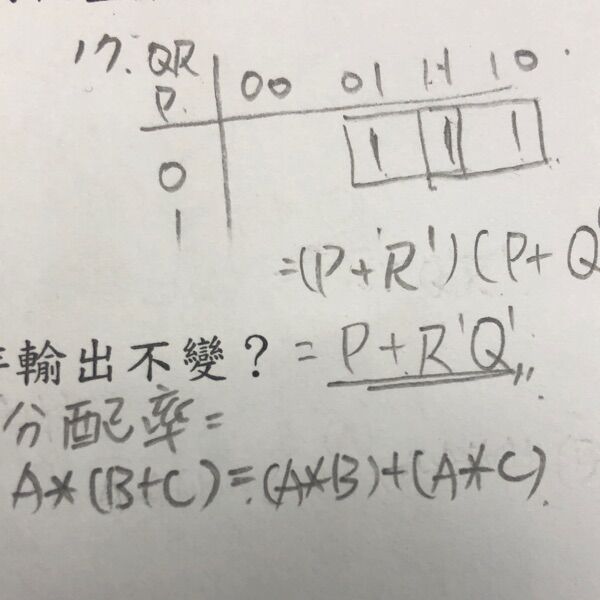 17. QR
P. 00 01 11 10
0 1 1 1
1
=(P+R')(P+Q'
輸出不變？ = P+R'Q'
分配率=
A*(B+C)=(A*B)+(A*C)